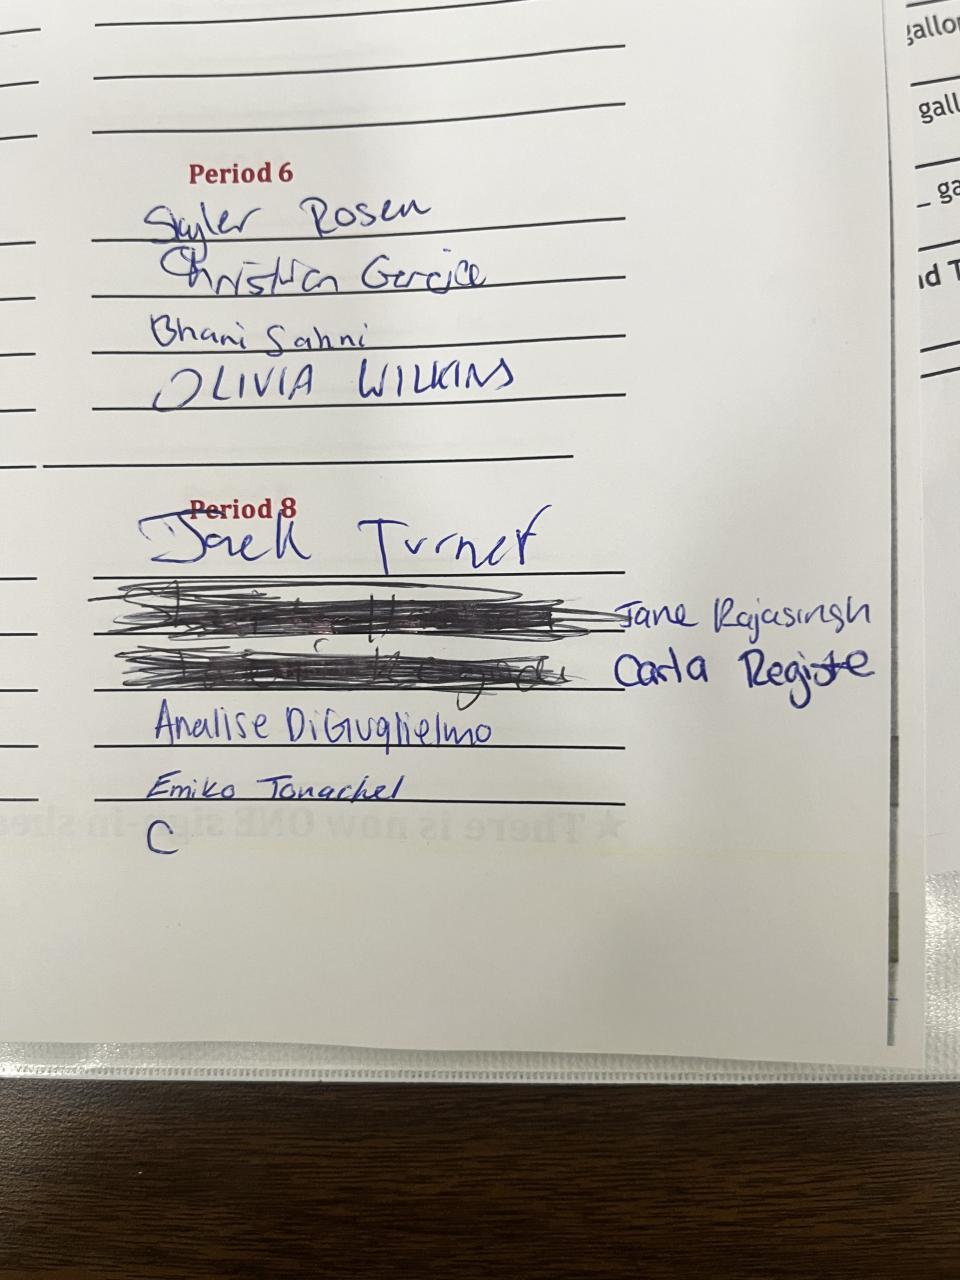 gallon
gall
_ ga
nd T
Period 6
Skyler Rosen
Christian Garcia
Bhani Sahni
OLIVIA WILKINS
Period 8
Jack Turner
Jane Rajasingh
Carla Registe
Analise DiGiuglielmo
Emiko Tonachel
C
★ There is now ONE sign-in shee